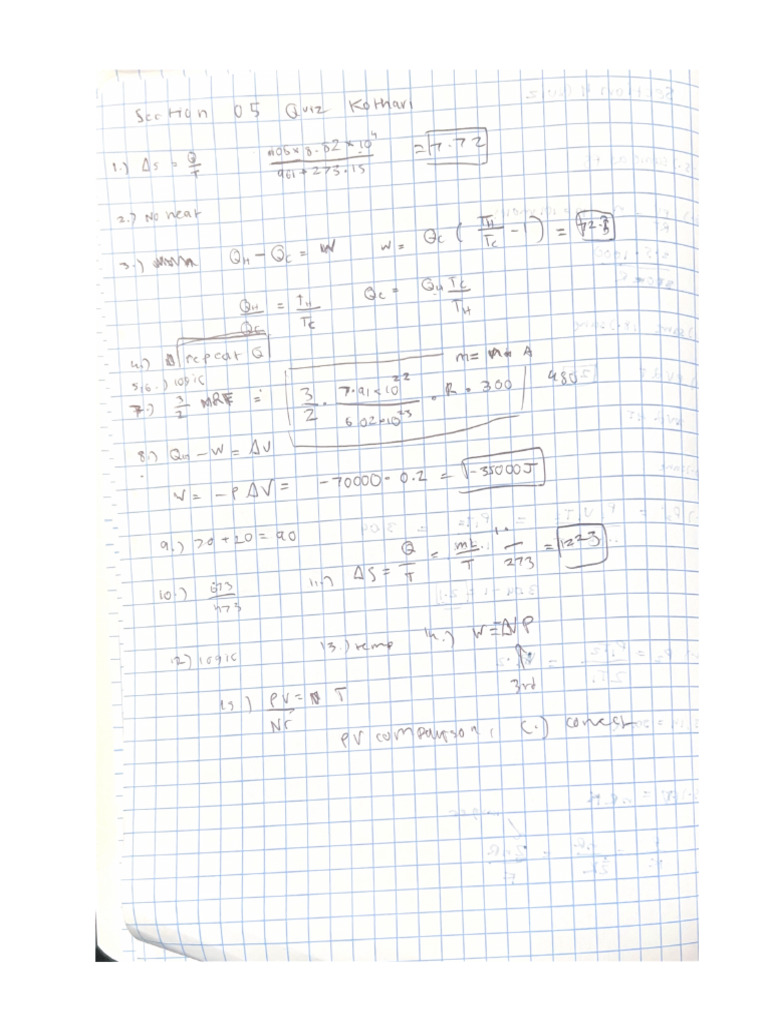 Section 05 Quiz Kothari
1.) ΔS = Q/T   (105 × 8.82 × 10^4)/(961 + 273.15) = 7.72
2.) No heat
3.) Q_H − Q_C = W   W = Q_C (T_H/T_C − 1) =
Q_H/Q_C = T_H/T_C   Q_C = Q_H T_C/T_H
4.) repeat Q
5,6.) logic   m = A
7.) 3/2 = 3/2 · (7.91×10^22)/(6.02×10^23) · R · 300   480
8.) Q_in − W = ΔU
W = −PΔV = −70000 − 0.2 = −35000 J
9.) 70 + 20 = 90
10.) 673/473   11.) ΔS = Q/T = mL/T · 1/273 = 1223
12) logic   13.) temp   14.) W = ΔVP
3rd
15) PV/Nr = T
PV comparison, C.) correct